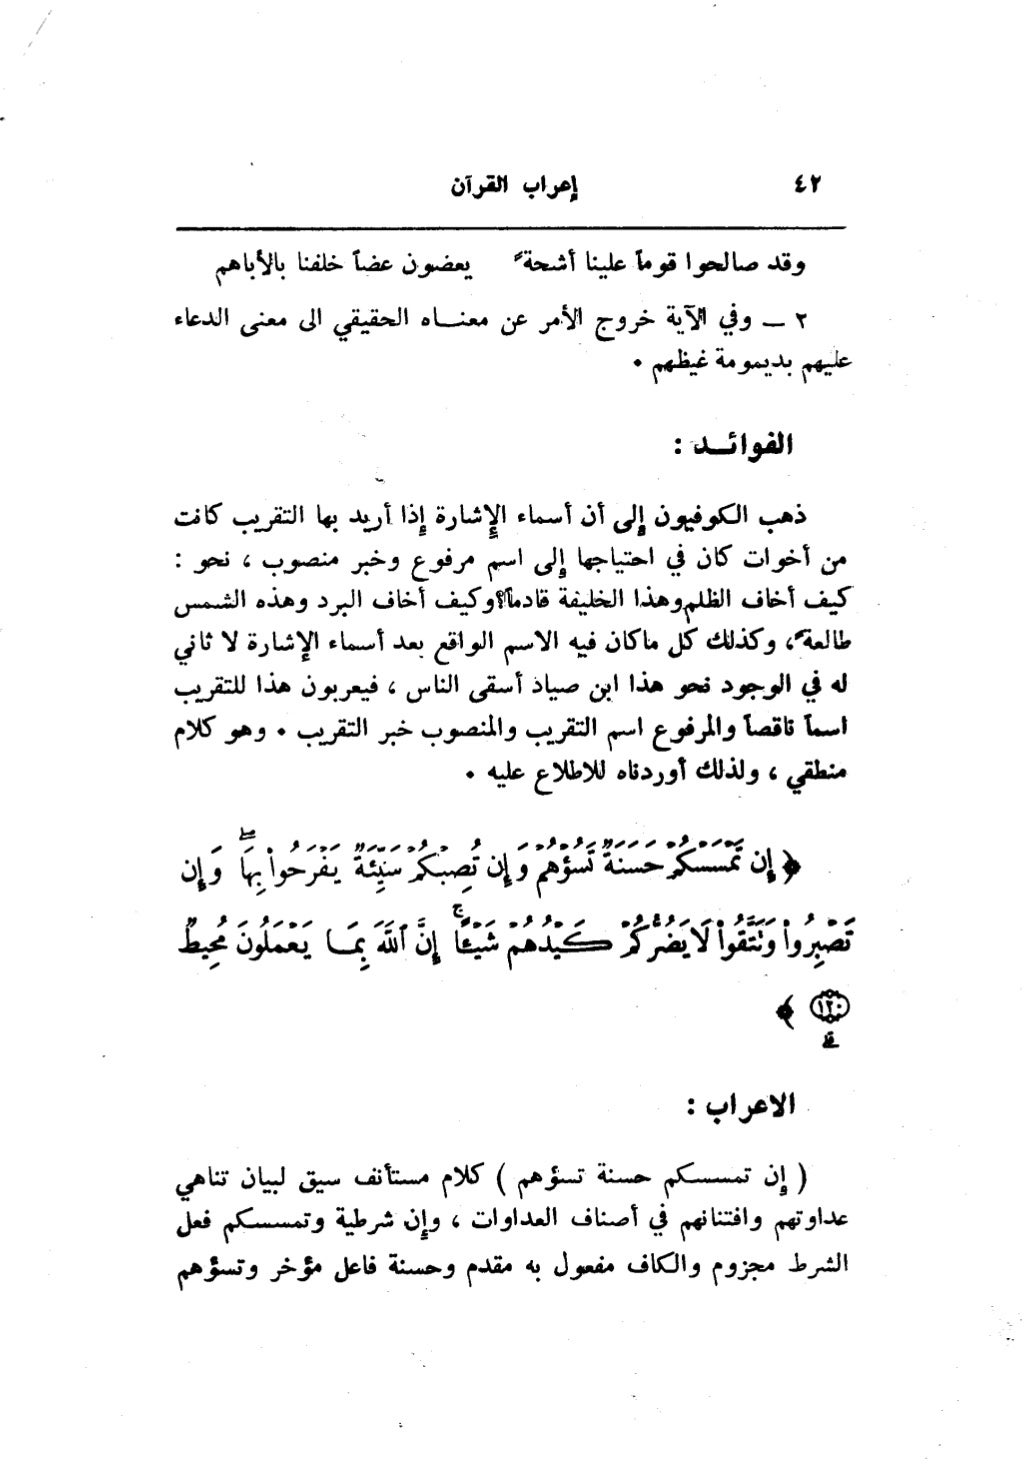 ٤٢ إعراب القرآن
وقد صالحوا قوماً علينا أشحةً يعضون عضاً خلفنا بالأباهم
٢ ــ وفي الآية خروج الأمر عن معنـــاه الحقيقي الى معنى الدعاء
عليهم بديمومة غيظهم .
الفوائــد :
ذهب الكوفيون إلى أن أسماء الإشارة إذا أريد بها التقريب كانت
من أخوات كان في احتياجها إلى اسم مرفوع وخبر منصوب ، نحو :
كيف أخاف الظلم وهذا الخليفة قادماً؟ وكيف أخاف البرد وهذه الشمس
طالعةً ، وكذلك كل ماكان فيه الاسم الواقع بعد أسماء الإشارة لا ثاني
له في الوجود نحو هذا ابن صياد أسقى الناس ، فيعربون هذا للتقريب
اسماً ناقصاً والمرفوع اسم التقريب والمنصوب خبر التقريب . وهو كلام
منطقي ، ولذلك أوردناه للاطلاع عليه .
﴿ إِن تَمْسَسْكُمْ حَسَنَةٌ تَسُؤْهُمْ وَإِن تُصِبْكُمْ سَيِّئَةٌ يَفْرَحُواْ بِهَاۖ وَإِن
تَصْبِرُواْ وَتَتَّقُواْ لَا يَضُرُّكُمْ كَيْدُهُمْ شَيْـًٔاۚ إِنَّ ٱللَّهَ بِمَا يَعْمَلُونَ مُحِيطٌ
١٢٠ ﴾
الاعراب :
( إن تمسسكم حسنة تسؤهم ) كلام مستأنف سيق لبيان تناهي
عداوتهم وافتنانهم في أصناف العداوات ، وإن شرطية وتمسسكم فعل
الشرط مجزوم والكاف مفعول به مقدم وحسنة فاعل مؤخر وتسؤهم